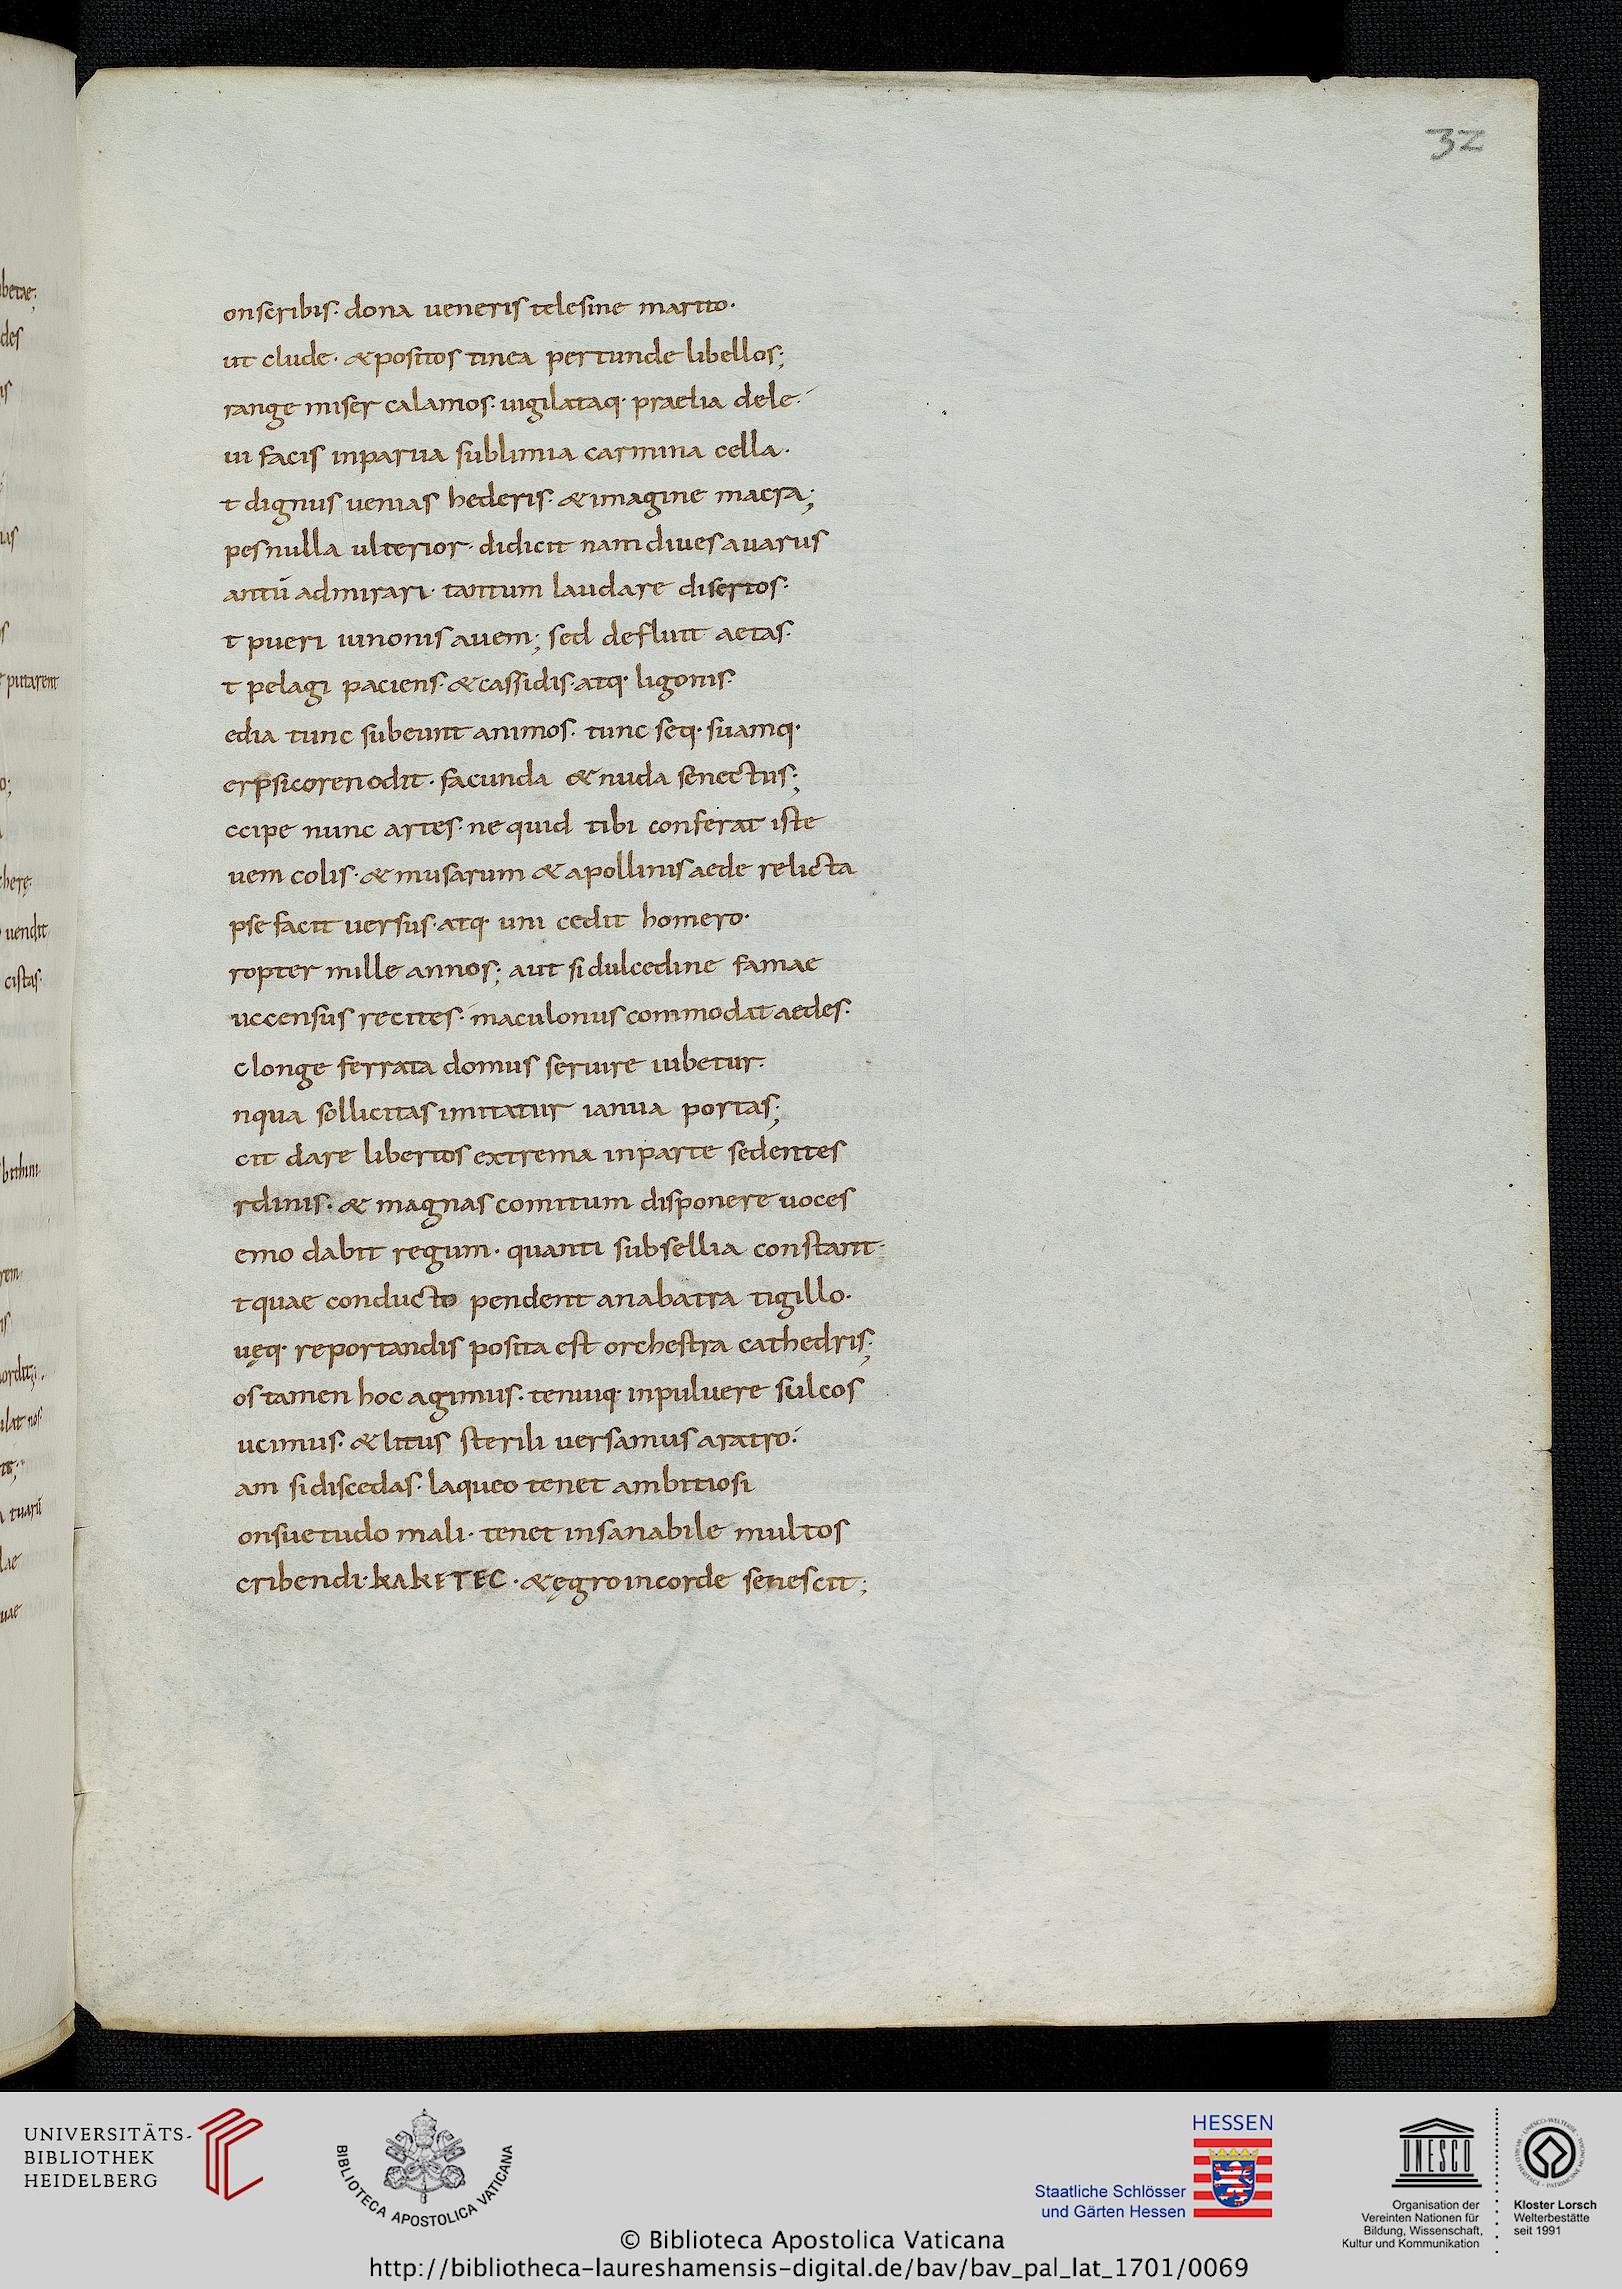 32
onscribis· dona ueneris telesine marito·
ut clude· &positos tinea pertunde libellos;
range miser calamos· uigilataq· praelia dele·
ui facis inparua sublimia carmina cella·
t dignus uenias hederis· &imagine macra;
pes nulla ulterior· didicit nam diues auarus
antū admirari· tantum laudare disertos·
t pueri iunonis auem; sed defluit aetas·
t pelagi paciens· &cassidis· atq· ligonis·
edia tunc subeunt animos· tunc seq· suamq·
erpsicoren odit· facunda & nuda senectus;
ccipe nunc artes· ne quid tibi conferat iste
uem colis· & musarum & apollinis aede relicta
pse facit uersus· atq· uni cedit homero·
ropter mille annos; aut si dulcedine famae
uccensus recites· maculonus commodat aedes·
c longe ferrata domus seruire iubetur·
nqua sollicitas imitatur ianua portas;
cit dare libertos extrema inparte sedentes
rdinis· & magnas comitum disponere uoces
emo dabit regum· quanti subsellia constant·
t quae conducto pendent anabatra tigillo·
uęq· reportandis posita est orchestra cathedris;
os tamen hoc agimus· tenuiq· inpuluere sulcos
ucimus· & litus sterili uersamus aratro·
am si discedas· laqueo tenet ambitiosi
onsuetudo mali· tenet insanabile multos
cribendi· KAKETEC · &ęgro incorde senescit;
UNIVERSITÄTS-
BIBLIOTHEK
HEIDELBERG
BIBLIOTECA APOSTOLICA VATICANA
HESSEN
Staatliche Schlösser
und Gärten Hessen
UNESCO
Organisation der
Vereinten Nationen für
Bildung, Wissenschaft,
Kultur und Kommunikation
Kloster Lorsch
Welterbestätte
seit 1991
© Biblioteca Apostolica Vaticana
http://bibliotheca-laureshamensis-digital.de/bav/bav_pal_lat_1701/0069